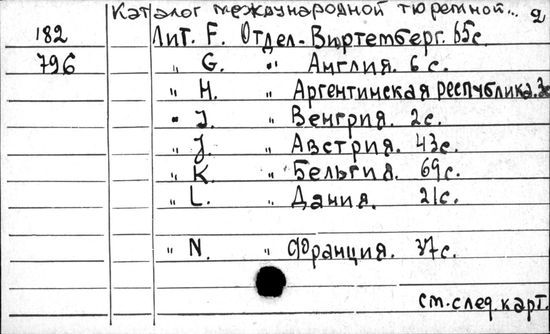 Каталог международной тюремной... 2
182 Лит. F. Отдел- Виртемберг. 65с.
796 " G. " Англия. 6 с.
" H. " Аргентинская республика. 3с
" I. " Венгрия. 2с.
" J. " Австрия. 43с.
" K. " Бельгия. 69с.
" L. " Дания. 21с.
" N. " Франция. 37с.
см. след. карт.